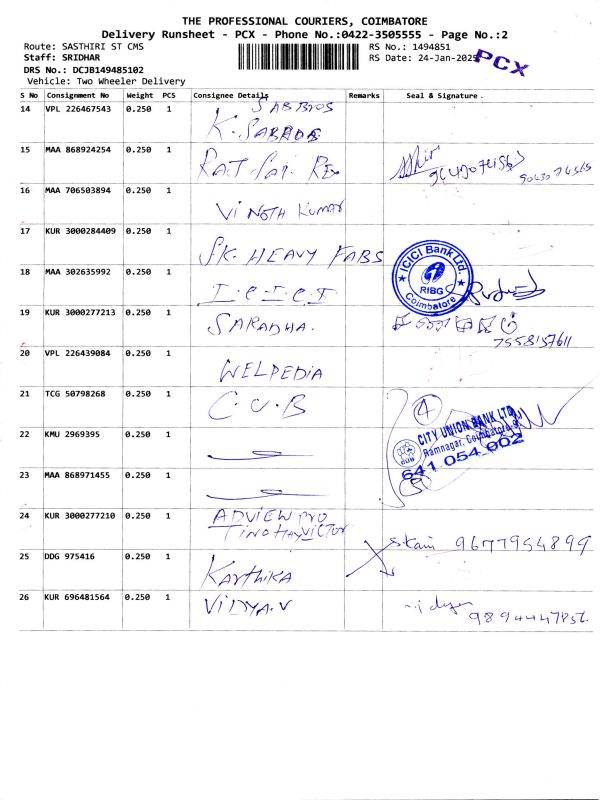 THE PROFESSIONAL COURIERS, COIMBATORE
Delivery Runsheet - PCX - Phone No.:0422-3505555 - Page No.:2
Route: SASTHIRI ST CMS
RS No.: 1494851
Staff: SRIDHAR
RS Date: 24-Jan-2025
PCX
DRS No.: DCJB149485102
Vehicle: Two Wheeler Delivery
S No Consignment No Weight PCS Consignee Details Remarks Seal & Signature
14 VPL 226467543 0.250 1 SABBROS
K.
15 MAA 868924254 0.250 1
16 MAA 706503894 0.250 1 VINOTH KUMAR
17 KUR 3000284409 0.250 1 SK. HEAVY FABS
18 MAA 302635992 0.250 1 I.C.I.C.I
ICICI Bank Ltd.
RIBG
Coimbatore
19 KUR 3000277213 0.250 1 SARADHA.
7558157611
20 VPL 226439084 0.250 1 WELPEDIA
21 TCG 50798268 0.250 1 C.U.B
4
CITY UNION BANK LTD.
Ramnagar, Coimbatore
641 054.002
CUB
22 KMU 2969395 0.250 1
23 MAA 868971455 0.250 1
24 KUR 3000277210 0.250 1 ADVIEW PRO
9677954899
25 DDG 975416 0.250 1 Karthika
26 KUR 696481564 0.250 1 VIDYA.V